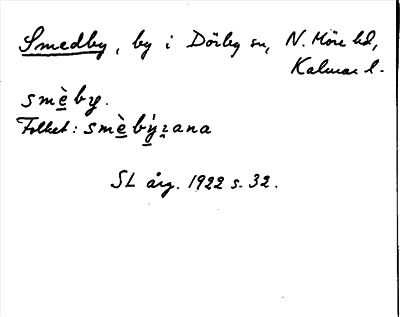 Smedby, by i Dörby sn, N. Möre hd,
Kalmar l.
smè̲by.
Folket: smè̲bý̲ꝛana
SL årg. 1922 s. 32.